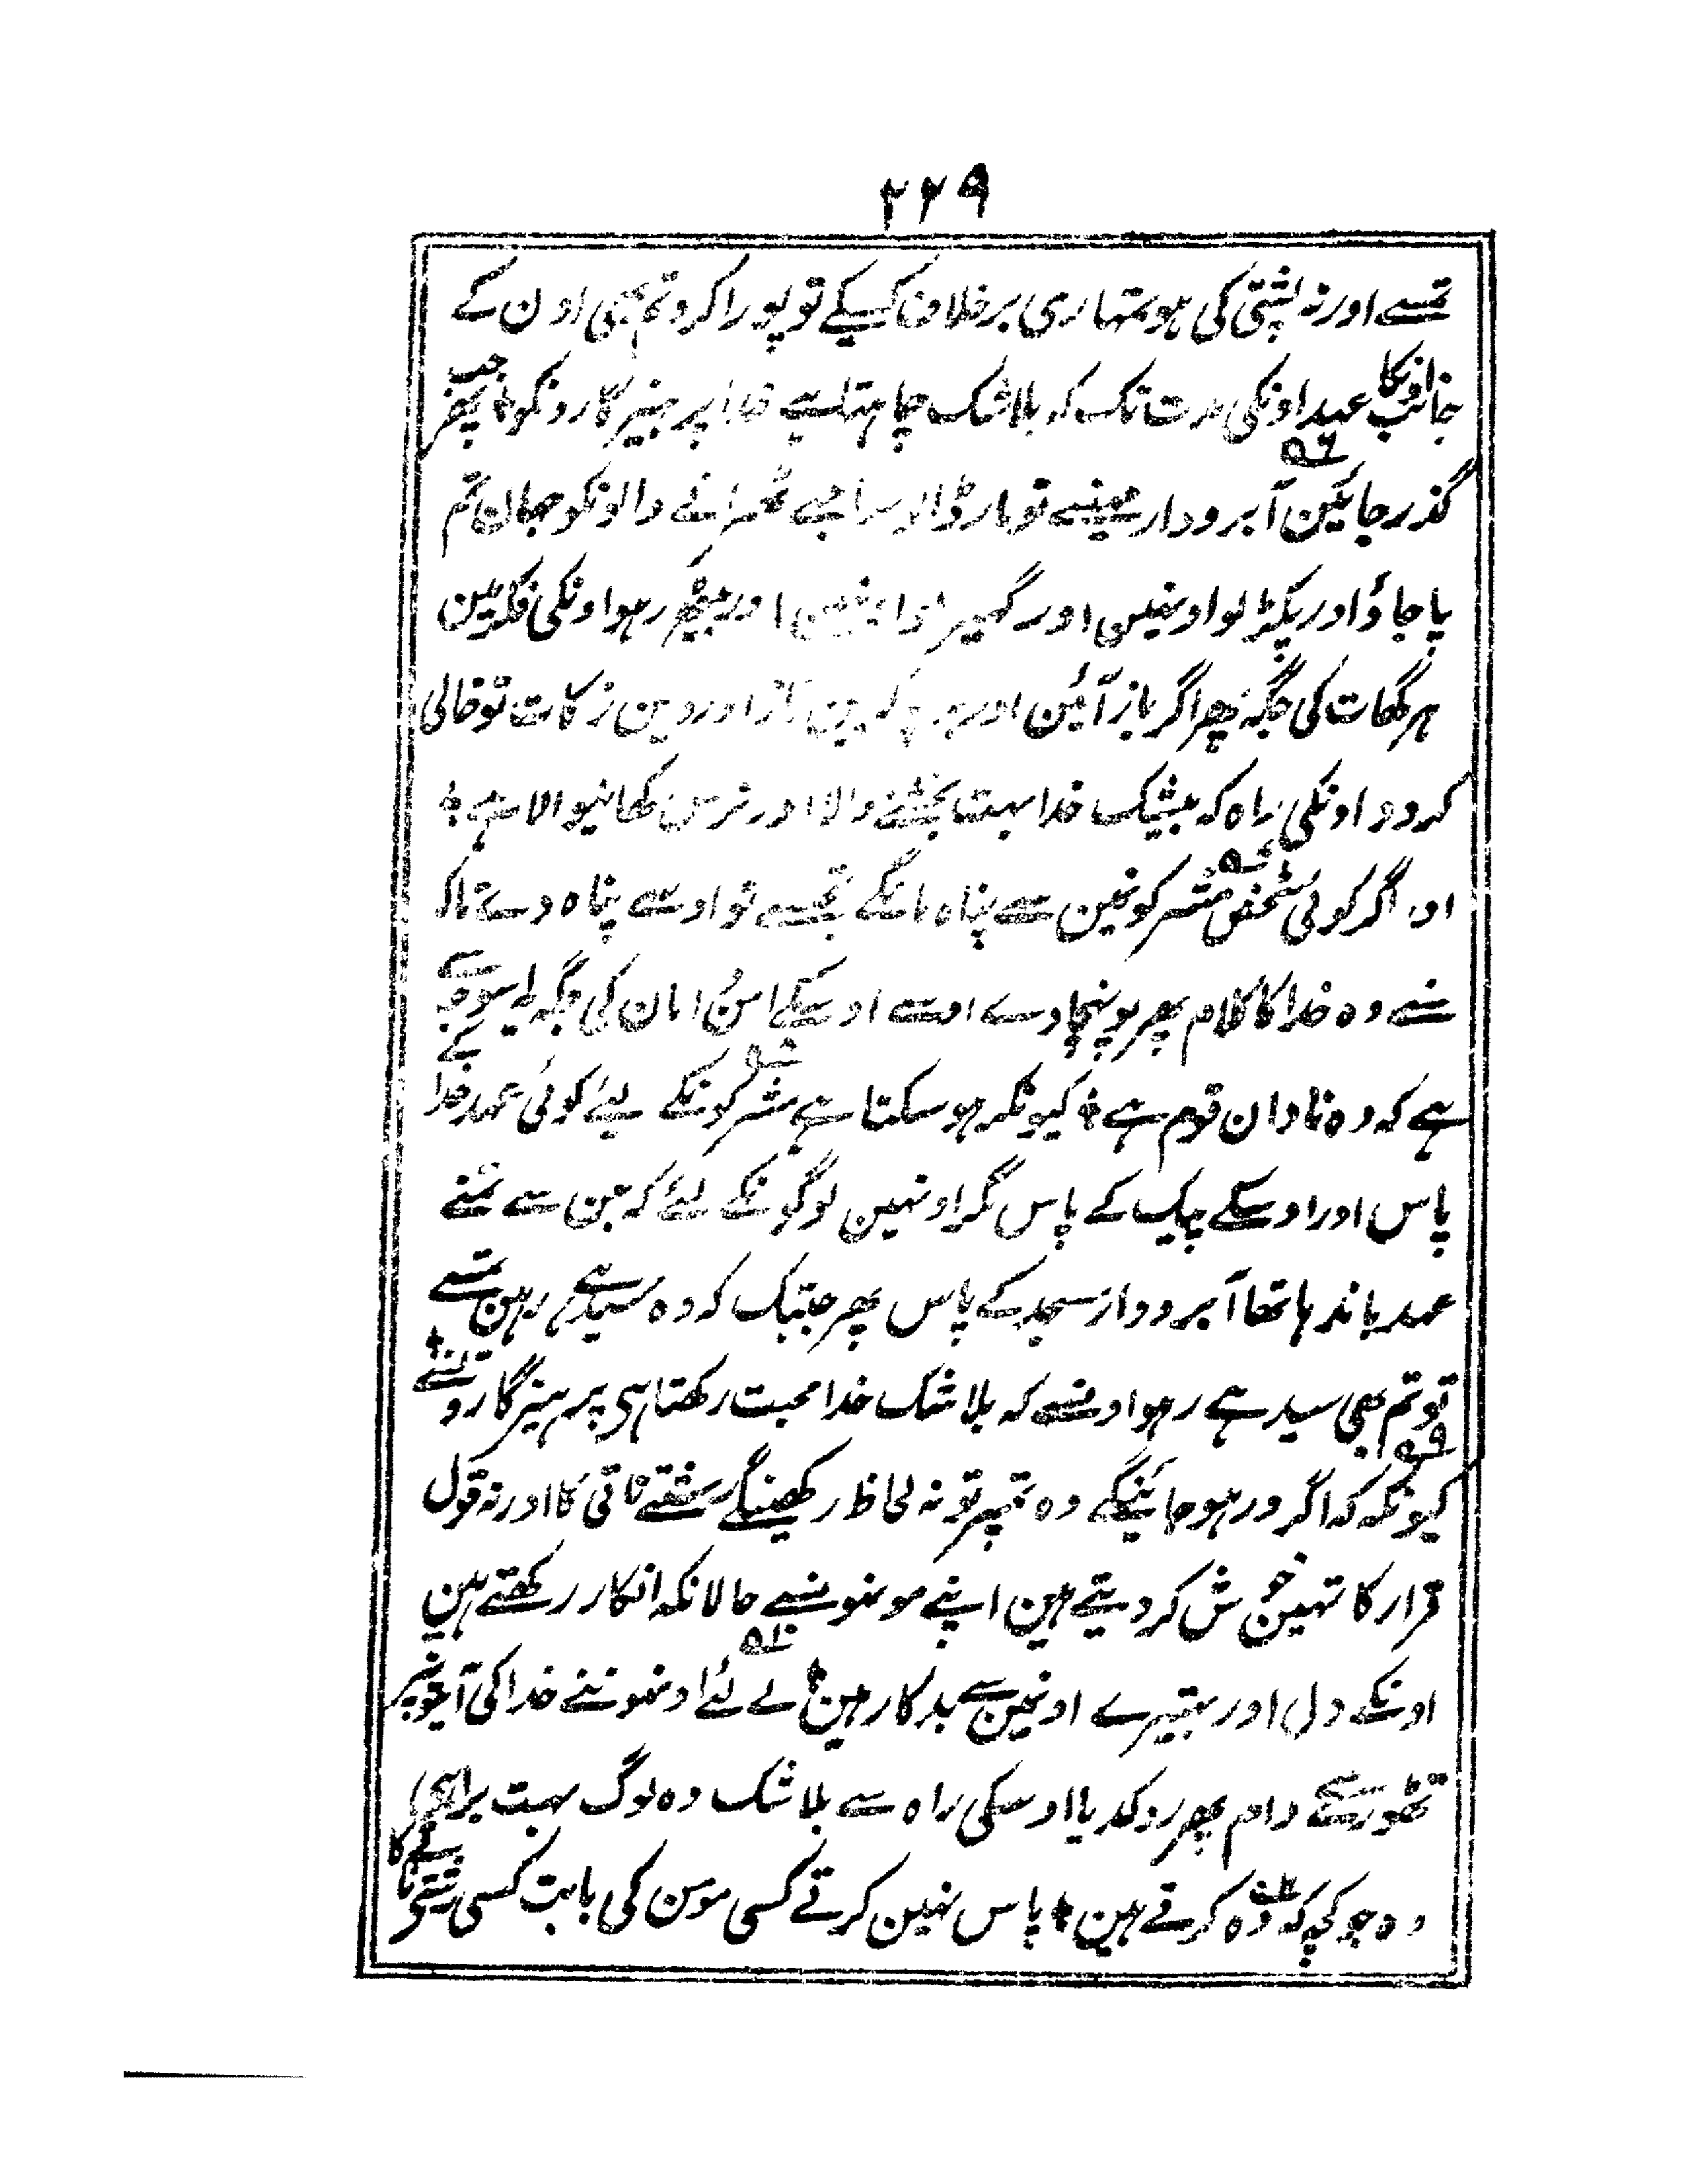 ۲۲۹
تمسے اور نہ پشتی کی ہو تمہاری برخلاف کسیکے تو پورا کر و تم بھی اون کے
جانب اونکا عہد اونکی مدت تک کہ بلاشک چاہتا ہے خدا پرہیزگارونکو ؞ پھر جب
گذر جائین آبرودار مہینے تو مار ڈالو ساجھے ٹھہرانے والونکو جہان تم
پا جاؤ اور پکڑ لو اونھین اور گھیر لو اونھین اور بیٹھے رہو اونکی فکر مین
ہر گھات کی جگہ پھر اگر باز آئین اور پڑھین نماز اور دین زکات تو خالی
کر دو اونکی راہ کہ بیشک خدا بہت بخشنے والا اور ترس کھانیوالا ہے ؞
اور اگر کوئی شخص مشرکونمین سے پناہ مانگے تجھسے تو اوسے پناہ دے تاکہ
سنے وہ خدا کا کلام پھر پونہچا دے اوسے اوسکے امن امان کی جگہ یہ اسوجہ سے
ہے کہ وہ نادان قوم ہے ؞ کیونکر ہو سکتا ہے مشرکونکے لیے کوئی عہد خدا کے
پاس اور اوسکے پیک کے پاس مگر اونہین لوگونکے لئے کہ جن سے تمنے
عہد باندہا تھا آبرودار مسجد کے پاس پھر جبتک کہ وہ سیدہے رہین تمسے
تو تم بھی سیدہے رہو اونسے کہ بلاشک خدا محبت رکھتا ہی پرہیزگارونسے ؞
کیونکہ کہ اگر ور ہو جائینگے وہ تمپر تو نہ لحاظ رکھینگے رشتے ناتی کا اور نہ قول
قرار کا تمہین خوش کر دیتے ہین اپنے مونہونسے حالانکہ انکار رکھتے ہین
اونکے دل اور بہتیرے اونمین سے بدکار ہین ؞ لے لئے اونہونے خدا کی آیتونپر
تھوڑے سے دام پھر روکدیا اوسکی راہ سے بلاشک وہ لوگ بہت برا ہی
وہ جو کچھ کہ وہ کرتے ہین ؞ پاس نہین کرتے کسی مومن کی بابت کسی رشتے ناتے کا